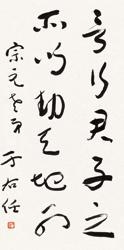 言行君子之
所以動天地也
宗元老弟
于右任